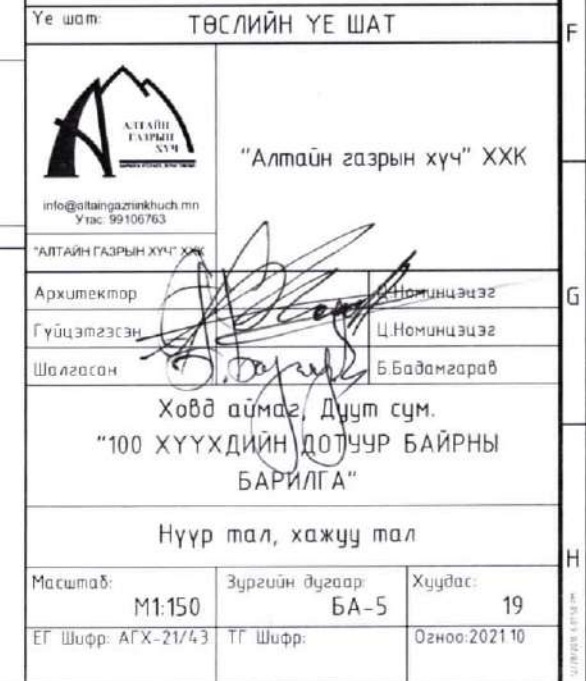 Үе шат:
ТӨСЛИЙН ҮЕ ШАТ
F
АЛТАЙН
ГАЗРЫН
ХҮЧ
info@altaingazriinkhuch.mn
Утас: 99106763
"АЛТАЙН ГАЗРЫН ХҮЧ" ХХК
"Алтайн газрын хүч" ХХК
G
Архитектор
Номинцэцэг
Гүйцэтгэсэн
Ц.Номинцэцэг
Шалгасан
Б.Бадамгарав
Ховд аймаг, Дуут сум.
"100 ХҮҮХДИЙН ДОТУУР БАЙРНЫ
БАРИЛГА"
Нүүр тал, хажуу тал
H
Масштаб:
М1:150
Зургийн дугаар:
БА-5
Хуудас:
19
ЕГ Шифр: АГХ-21/43
ТГ Шифр:
Огноо:2021.10